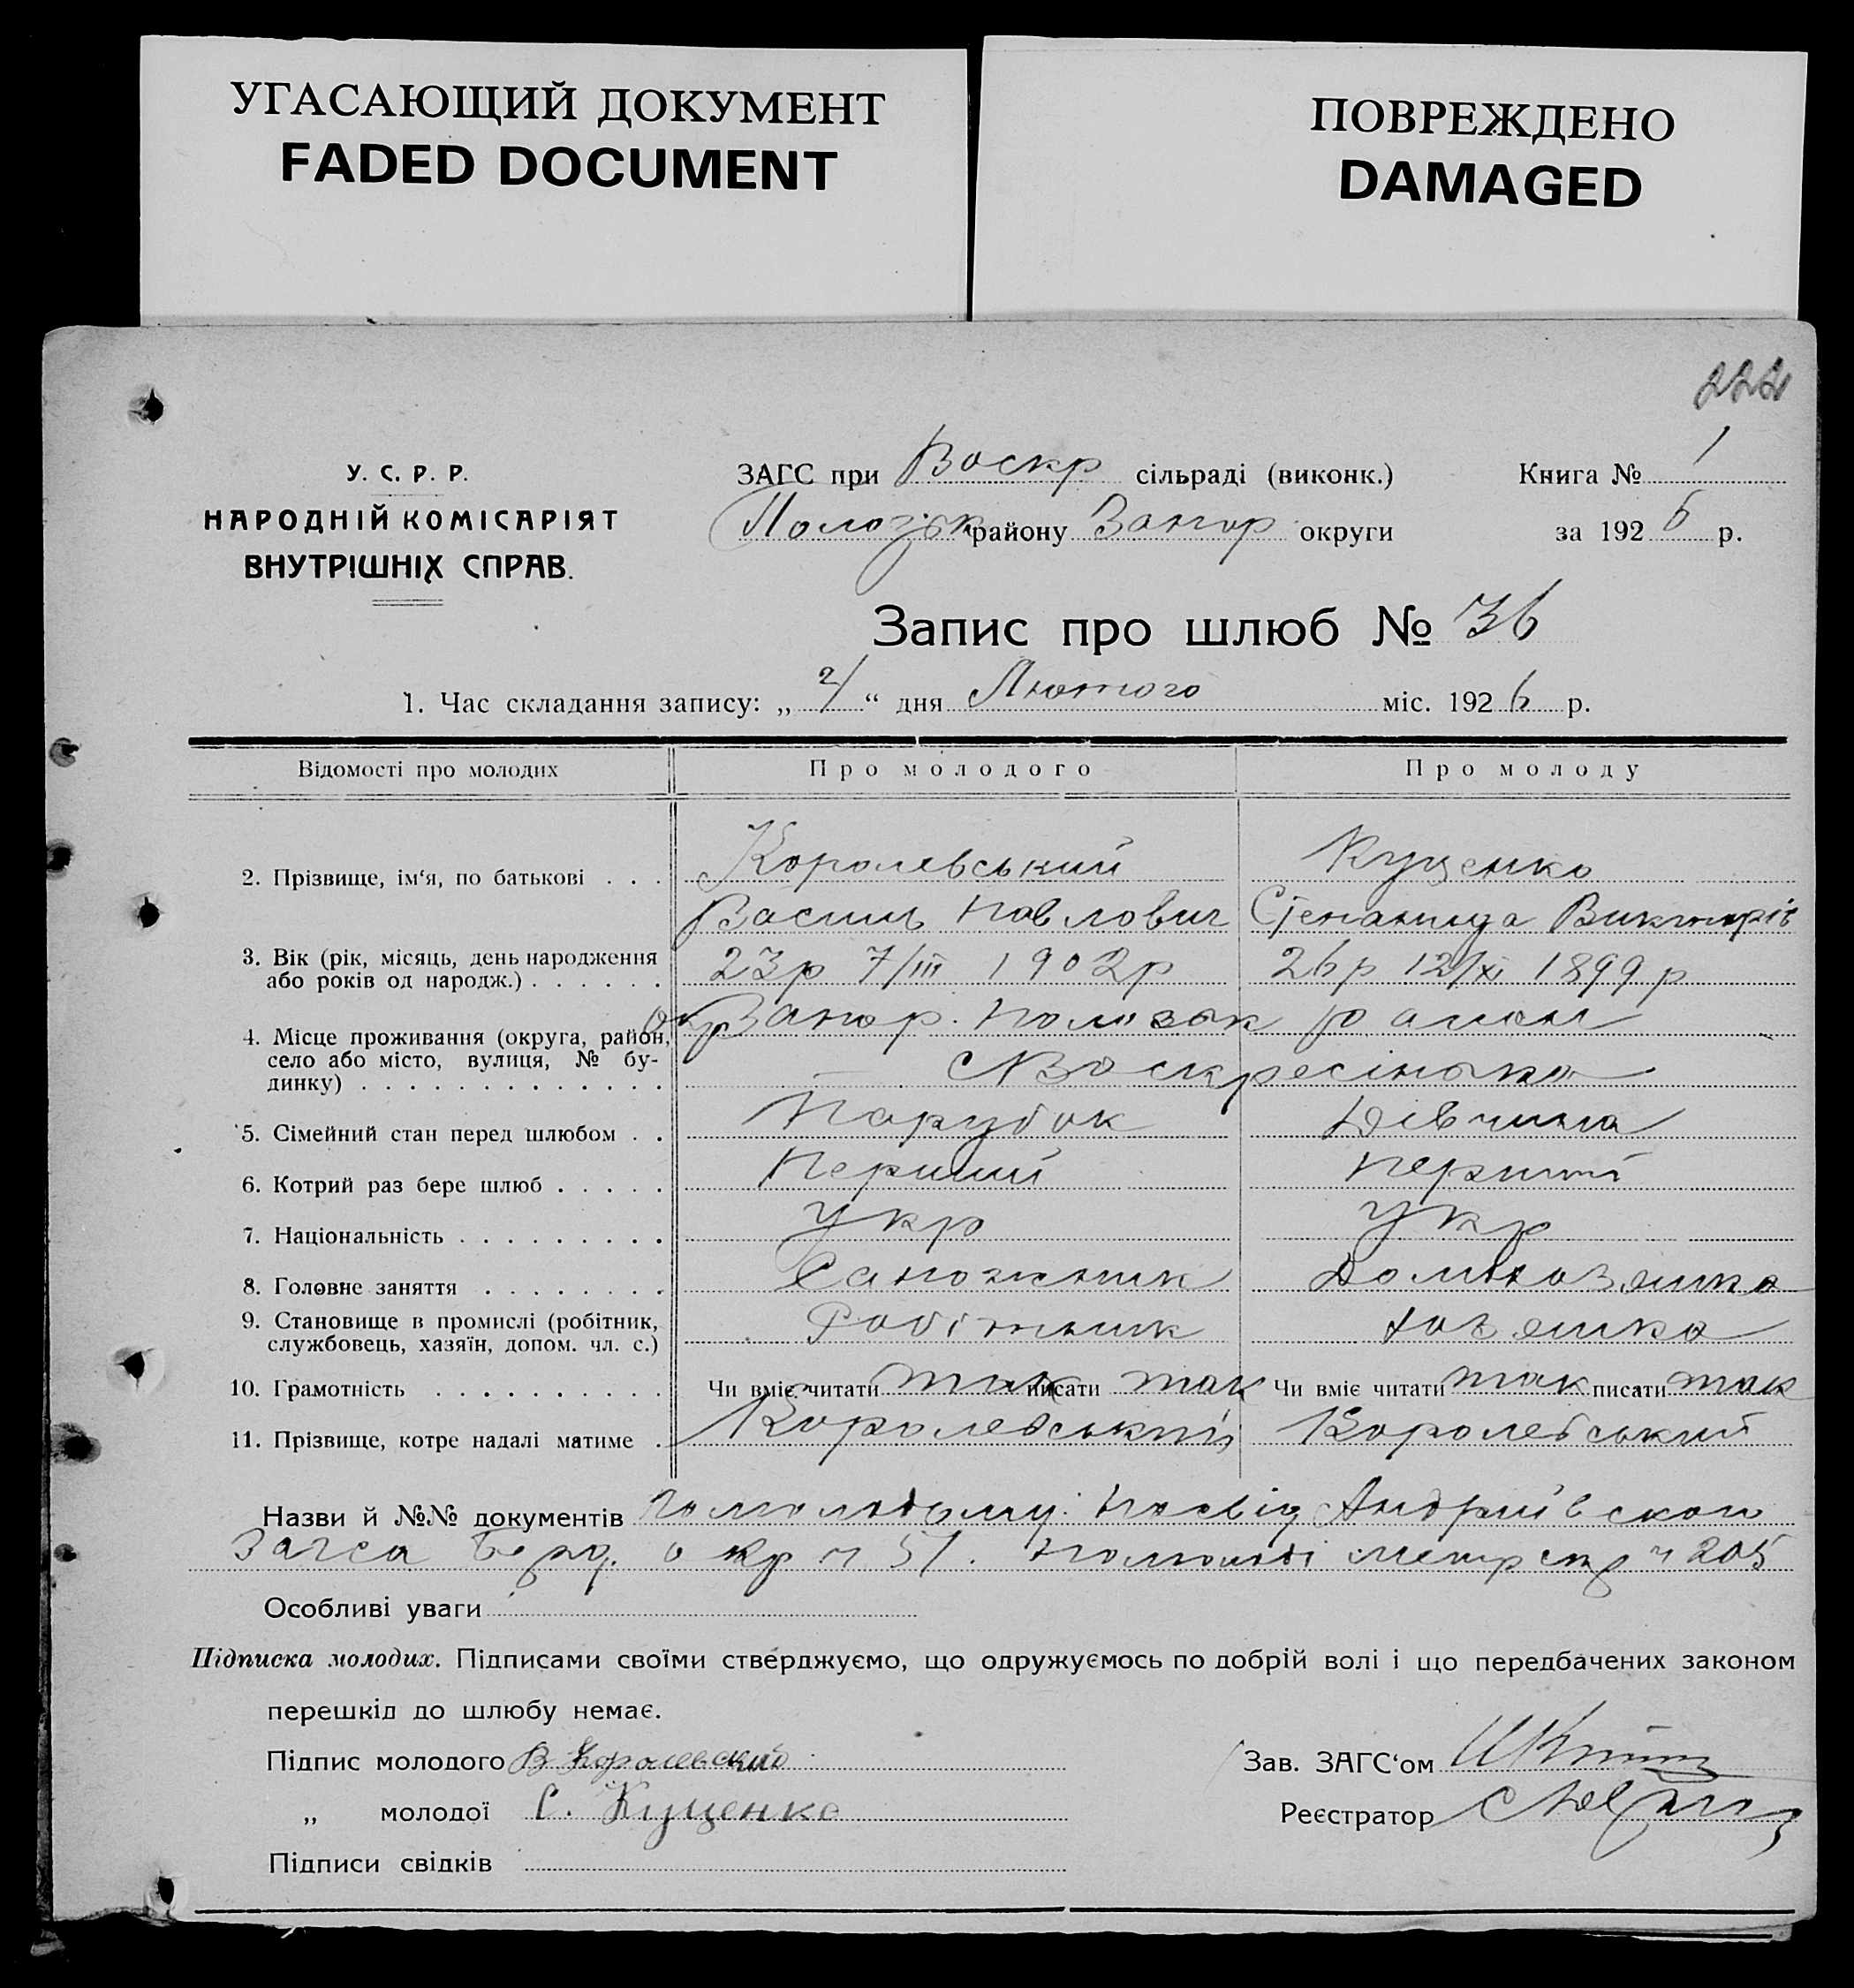 УГАСАЮЩИЙ ДОКУМЕНТ
FADED DOCUMENT
ПОВРЕЖДЕНО
DAMAGED
222
У. С. Р. Р.
НАРОДНІЙ КОМІСАРІЯТ
ВНУТРІШНІХ СПРАВ.
ЗАГС при Воскр сільраді (виконк.) Книга № 1
Пологськ району Запор округи за 1926 р.
Запис про шлюб № 36
1. Час складання запису: „ “ дня Лютого міс. 1926 р.
Відомості про молодих Про молодого Про молоду
2. Прізвище, ім‘я, по батькові . . . Королевський Куценко
Василь Павлович Степанида Викторів
3. Вік (рік, місяць, день народження або років од народж.) . . . . . . 23р 7/III 1902р 26р 12/XI 1899р
4. Місце проживання (округа, район, село або місто, вулиця, № будинку) . . . . . . . . . . . . . Окр Запор. Пологськ район
с Воскресінька
5. Сімейний стан перед шлюбом . . Парубок Дівчина
6. Котрий раз бере шлюб . . . . . Перший перший
7. Національність . . . . . . . . . Укр Укр
8. Головне заняття . . . . . . . . Сапожник Домохозяйка
9. Становище в промислі (робітник, службовець, хазяїн, допом. чл. с.) Робітник хозяйка
10. Грамотність . . . . . . . . . . Чи вміє читати так писати так Чи вміє читати так писати так
11. Прізвище, котре надалі матиме . Королевський Королевський
Назви й №№ документів По молодому: Посвід Андріївского
Загса Берд. окр ч 51. По молоді метр ч 205
Особливі уваги
Підписка молодих. Підписами своїми стверджуємо, що одружуємось по добрій волі і що передбачених законом
перешкід до шлюбу немає.
Підпис молодого В Королевский Зав. ЗАГС‘ом
„ молодої С. Куценко Реєстратор
Підписи свідків